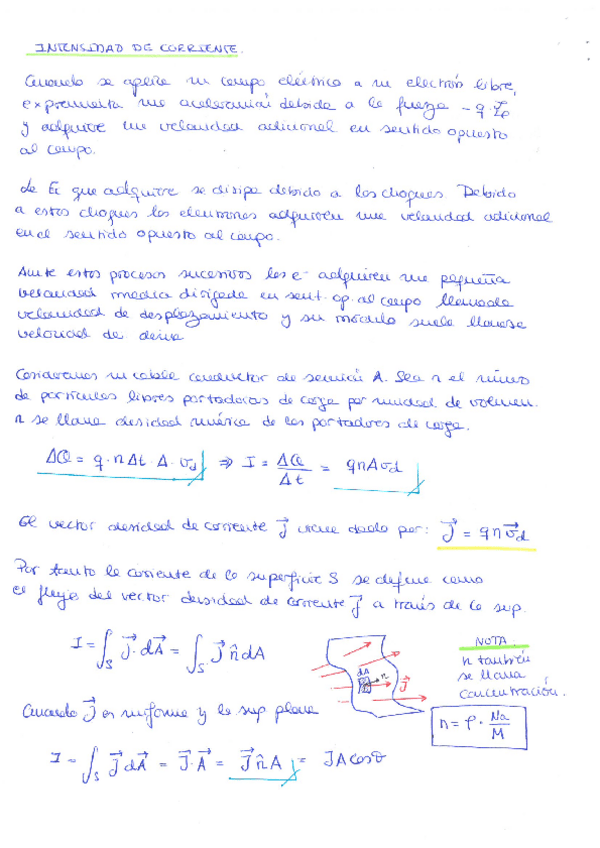 INTENSIDAD DE CORRIENTE.
Cuando se aplica un campo eléctrico a un electrón libre,
experimenta una aceleración debida a la fuerza -q·E
y adquiere una velocidad adicional en sentido opuesto
al campo.
La Ec que adquiere se disipa debido a los choques. Debido
a estos choques los electrones adquieren una velocidad adicional
en el sentido opuesto al campo.
Ante estos procesos sucesivos los e- adquieren una pequeña
velocidad media dirigida en sent. op. al campo llamada
velocidad de desplazamiento y su módulo suele llamarse
velocidad de deriva
Consideramos un cable conductor de sección A. Sea n el número
de partículas libres portadoras de carga por unidad de volumen.
n se llama densidad numérica de los portadores de carga.
ΔQ = q·nΔt·A·vd ⇒ I = ΔQ/Δt = qnAvd
El vector densidad de corriente J⃗ viene dado por: J⃗ = qnv⃗d
Por tanto la corriente de la superficie S se define como
el flujo del vector densidad de corriente J⃗ a través de la sup.
I = ∫S J⃗·dA⃗ = ∫S J⃗ n̂ dA
dA
n
J⃗
NOTA.
n también
se llama
concentración.
n = ρ · Na/M
Cuando J⃗ es uniforme y la sup plana
I = ∫S J⃗dA⃗ = J⃗·A⃗ = J⃗n̂A = JAcosθ